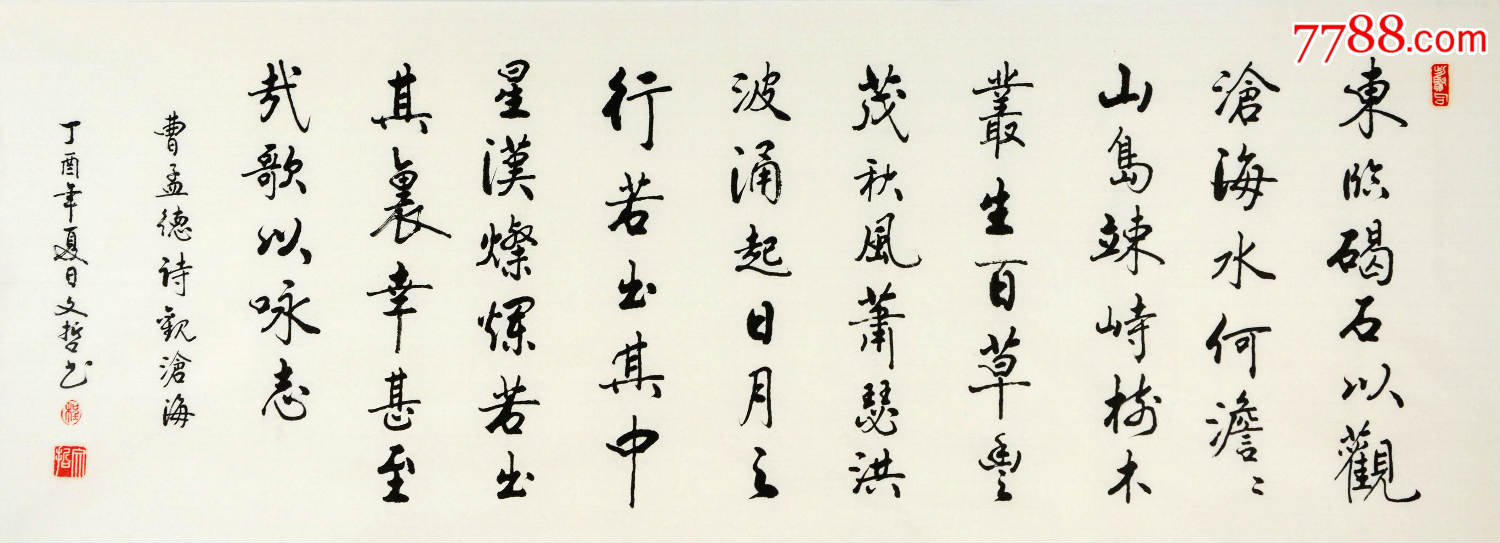 7788.com
東臨碣石以觀
滄海水何澹〻
山島竦峙樹木
叢生百草豐
茂秋風蕭瑟洪
波涌起日月之
行若出其中
星漢燦爛若出
其裏幸甚至
哉歌以咏志
曹孟德诗觀滄海
丁酉年夏日文哲书